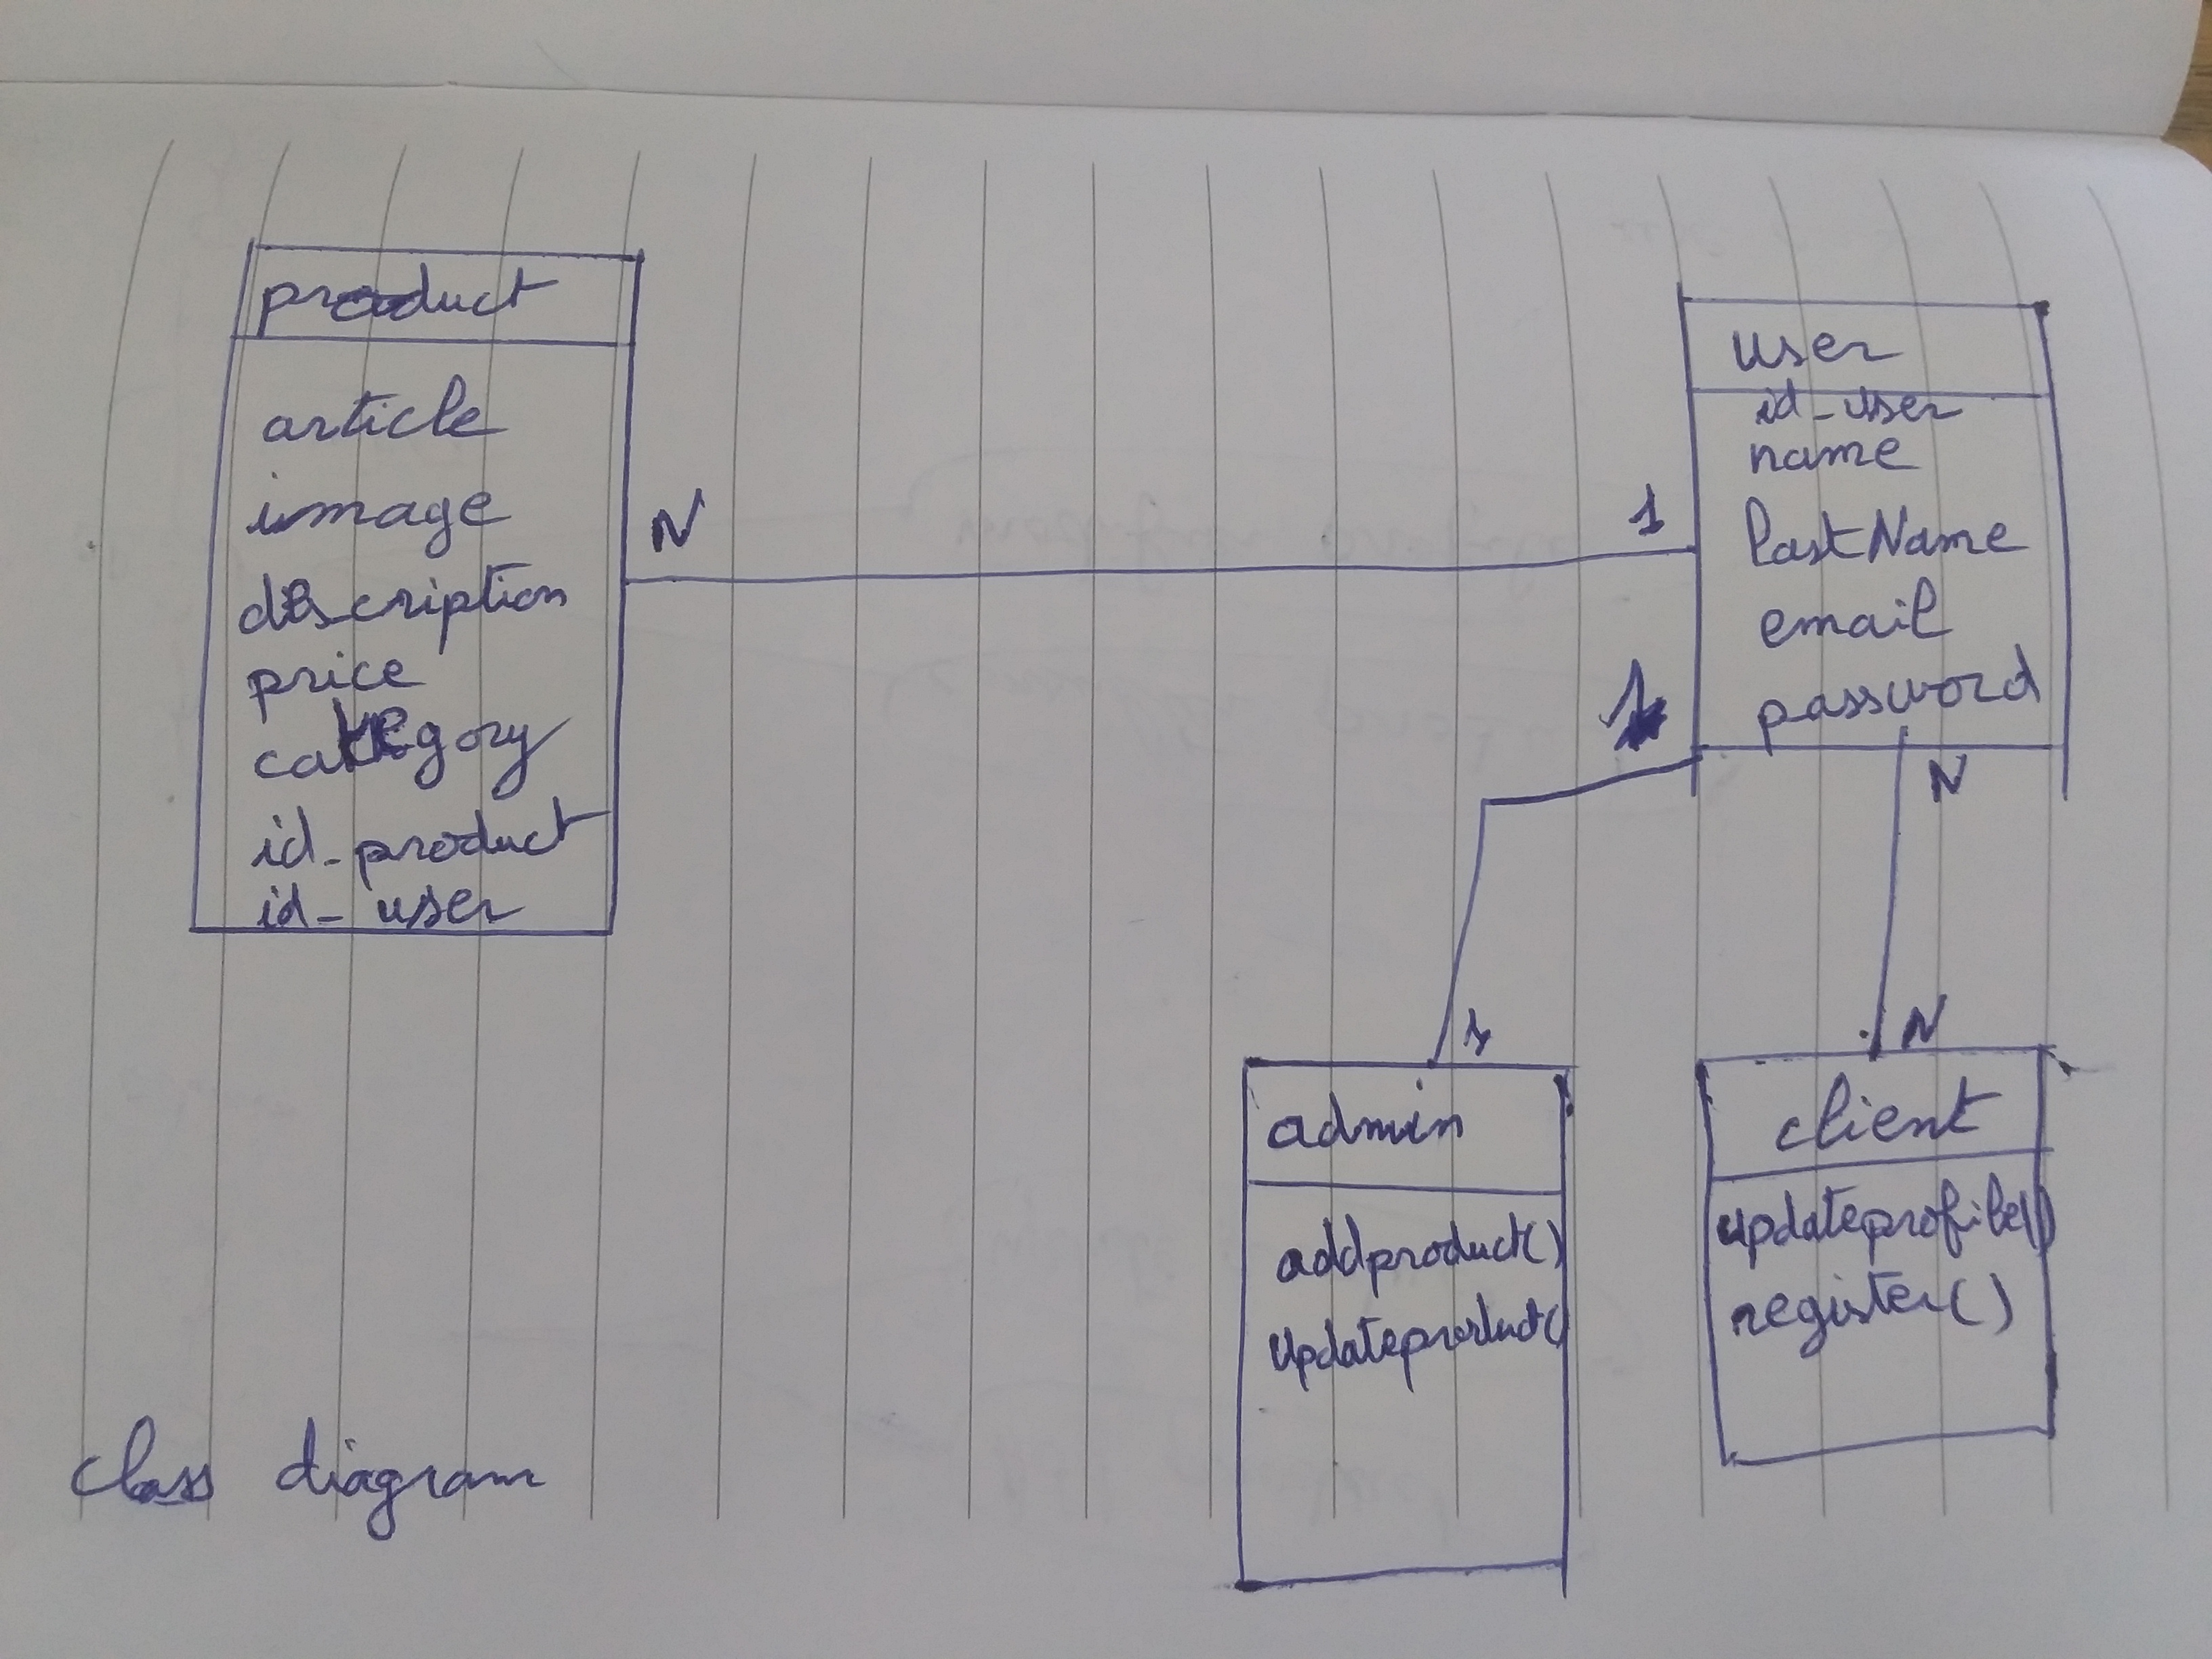 product
article
image
description
price
category
id_product
id_user
N
1
user
id_user
name
lastName
email
password
1
N
1
N
admin
addproduct()
updateproduct(
client
updateprofile()
register()
class diagram